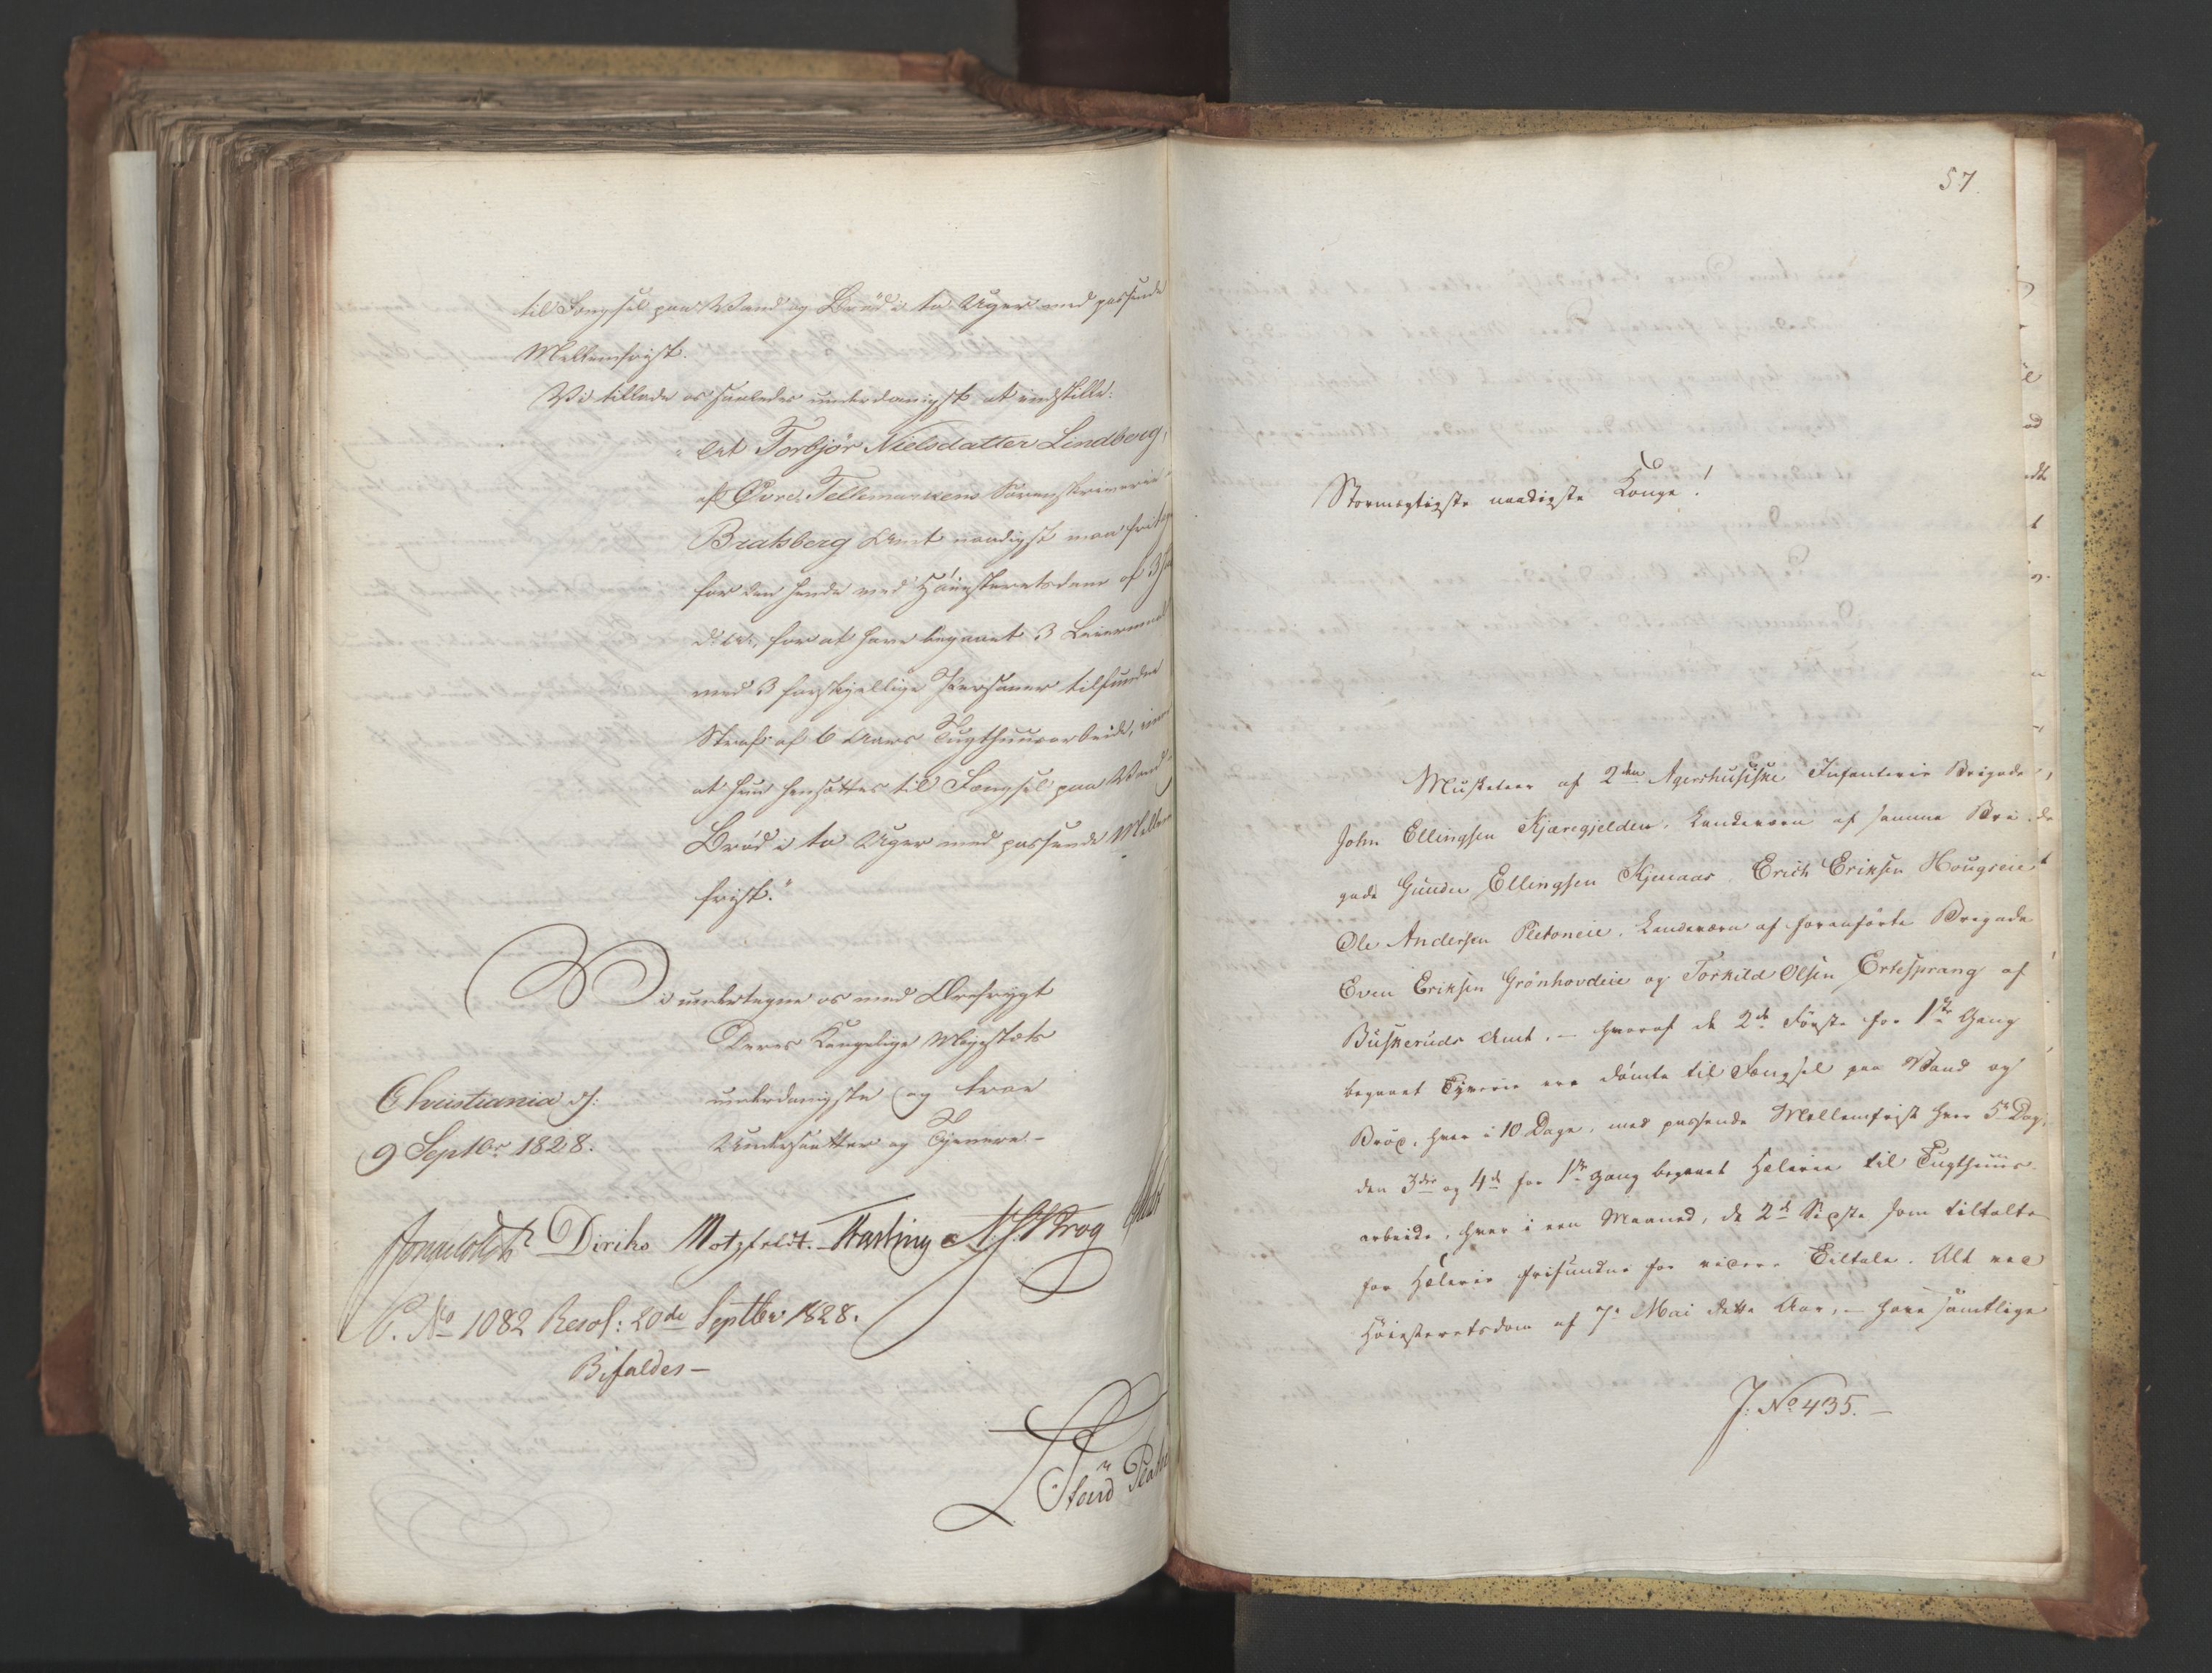 til Fængsel paa Vand og Brød i to Uger med passende
Mellemfrist.
Vi tillade os saaledes underdanigst at indstille:
"At Torbjør Nielsdatter Lindberg,
af Øvre Tellemarkens Sorenskriverie
Bratsberg Amt naadigst maa fritages
for den hende ved Høiesteretsdom af 3
d: A:, for at have begaaet 3 Leiermaal
med 3 forskjellige Personer tilfundne
Straf af 6 Aars Tugthuusarbeide, imod
at hun hensættes til Fængsel paa Vand
Brød i to Uger med passende Mellem
frist."
Vi undertegne os med Ærefrygt
Deres Kongelige Majestæts
Christiania d: underdanigste og troe
9 Septbr 1828. Undersaatter og Tjenere. –
Diriks Motzfeldt. Krog
C. No 1082 Resol: 20de Septbr 1828.
Bifaldes –
57.
Stormægtigste naadigste Konge!
Musketeer af 2den Agershusiske Infanterie Brigade,
John Ellingsen Kjæregjelden, Landeværn af samme Bri-
gade Gunder Ellingsen Kjenaas, Erich Eriksen Hougseie
Ole Andersen Pletoneie, Landeværn af foranførte Brigade
Even Eriksen Grønhovdeie og Torkild Olsen Ertesprang af
Buskeruds Amt, – hvoraf de 2de Første for 1ste Gang
begaaet Tyverie ere dømte til Fængsel paa Vand og
Brød, hver i 10 Dage, med passende Mellemfrist hver 5te Dag,
den 3die og 4de for 1ste Gang begaaet Hæleri til Tugthuus-
arbeide, hver i een Maaned, de 2de Sidste som tiltalte
for Hæleri frifundne for videre Tiltale. Alt ved
Høiesteretsdom af 7de Mai dette Aar, – have samtlige
J: No 435. –